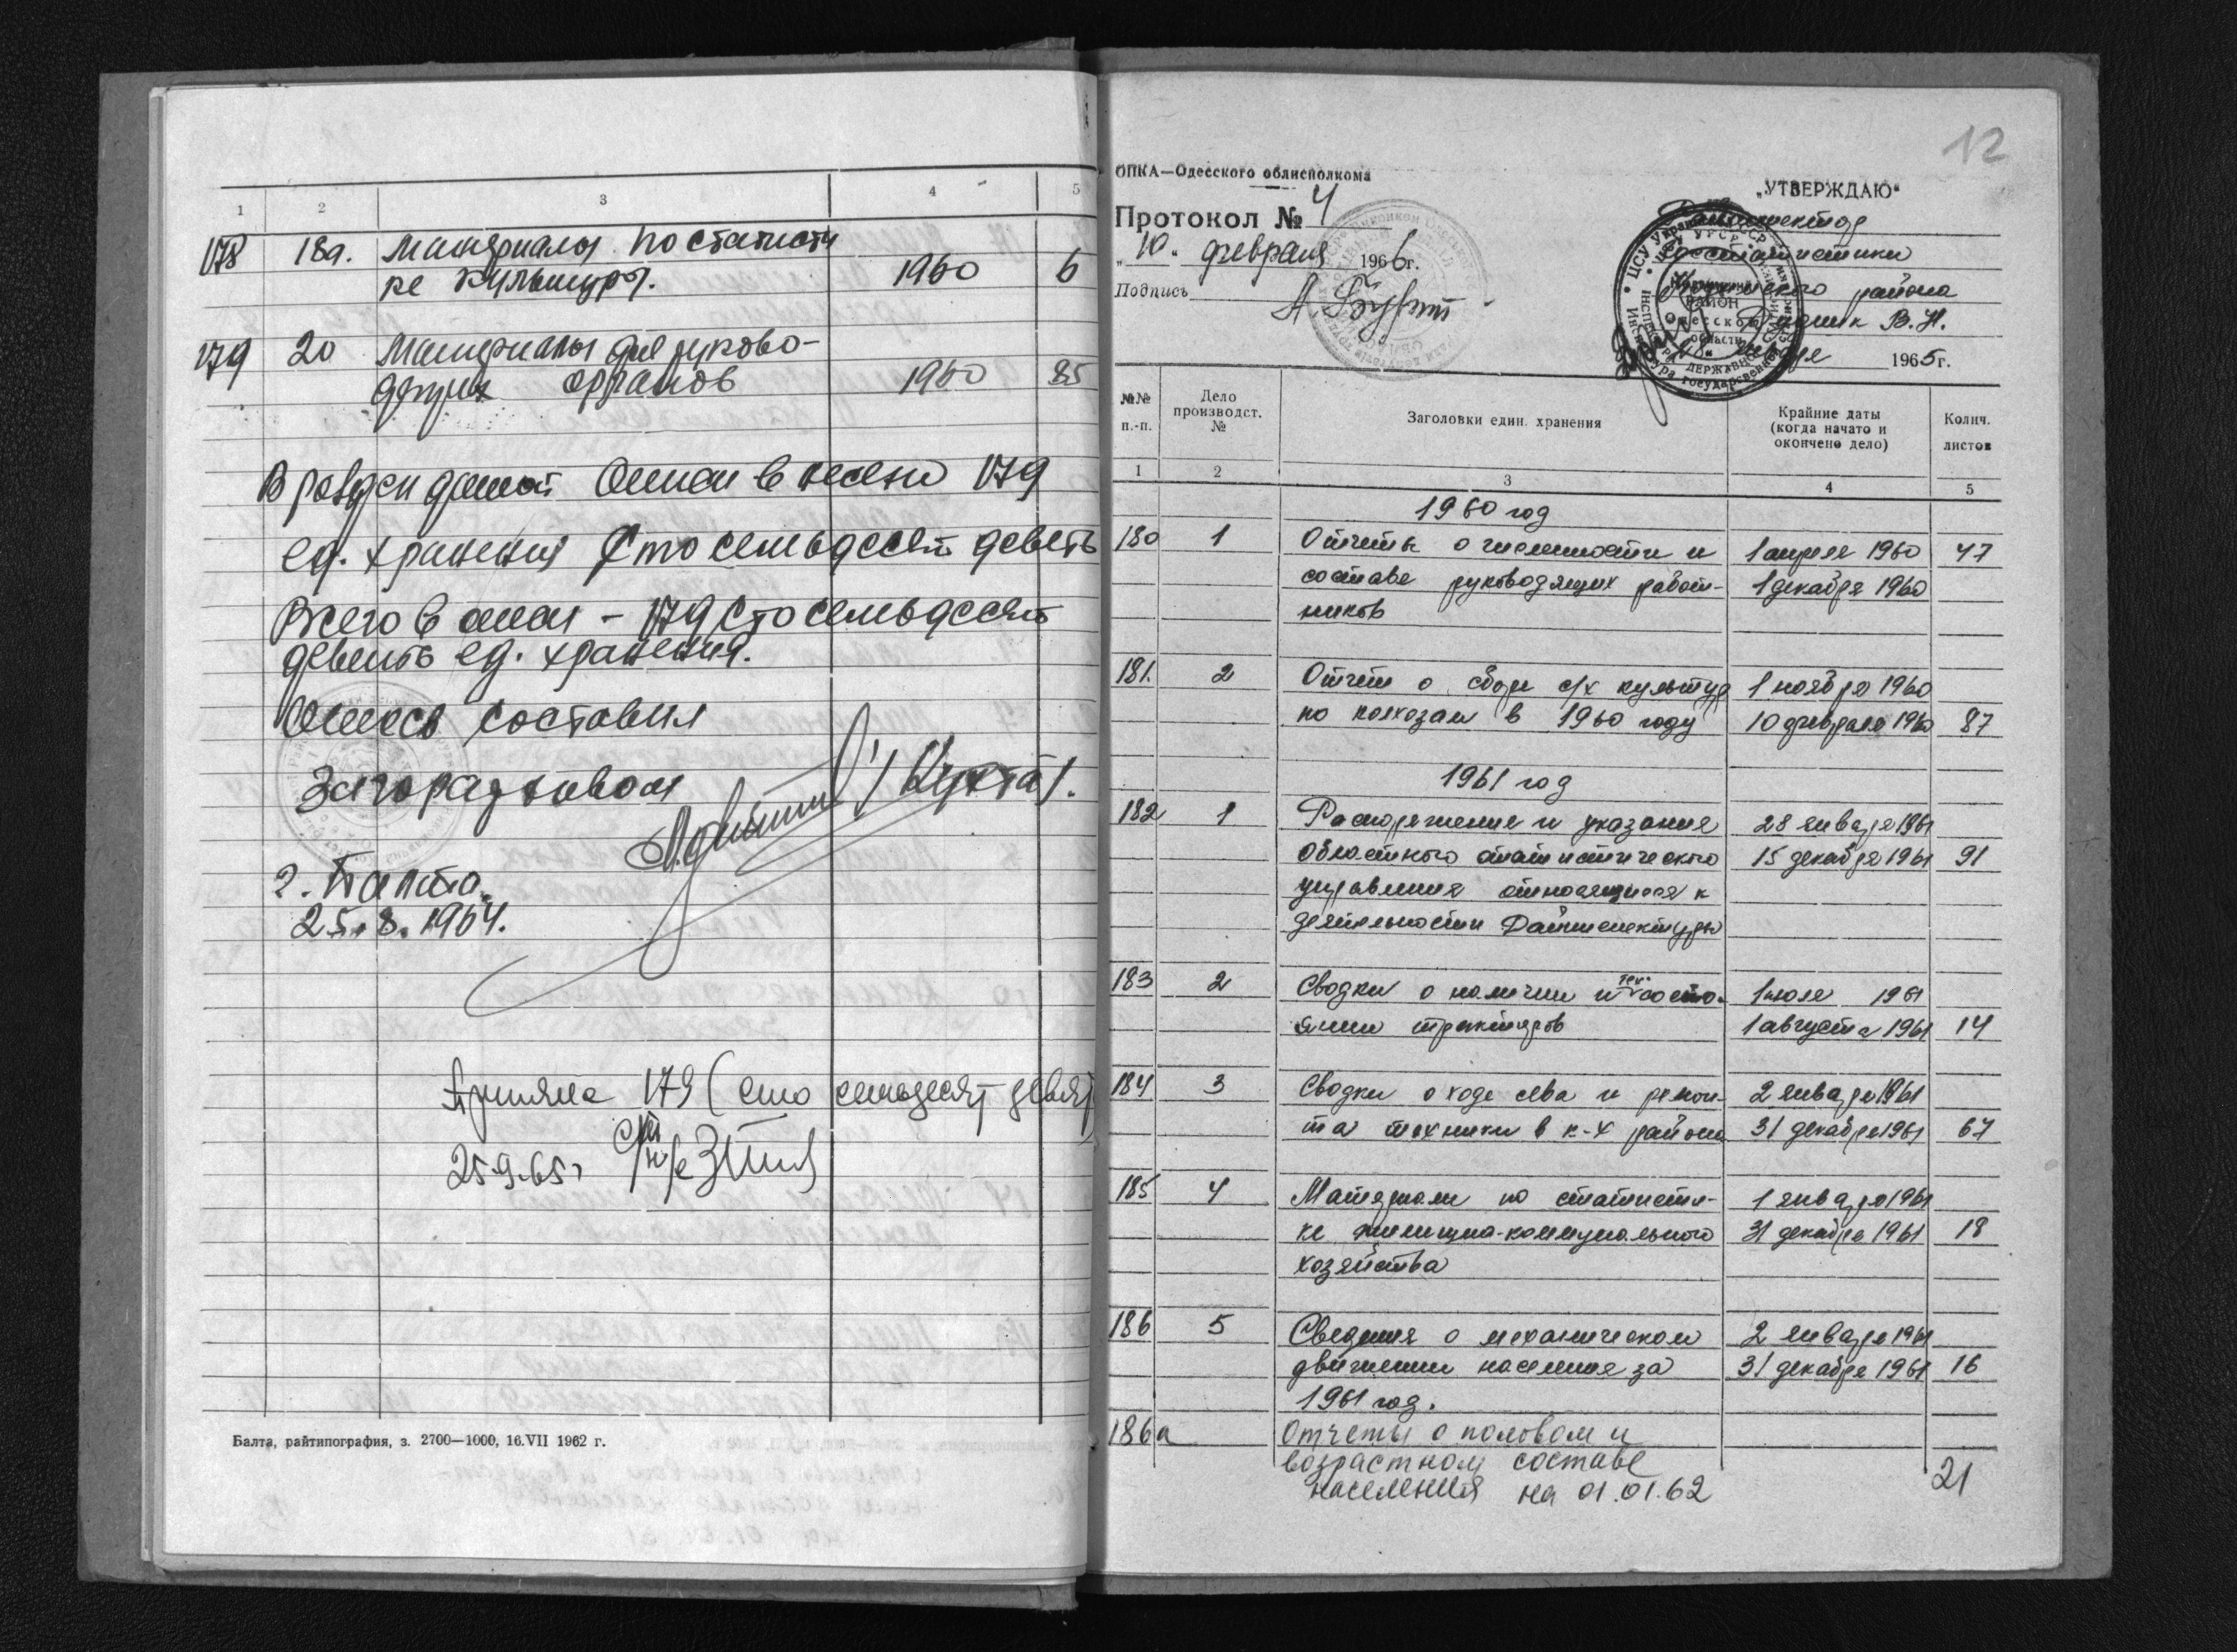 1 2 3 4 5
178 18а. Материалы по статисти
ке культуры. 1960 6
179 20 Материалы для руково-
дящих органов 1960 85
В раздел данной Описи внесено 179
ед. хранения Сто семьдесят девять
Всего в описи - 179 Сто семьдесят
девять ед. хранения.
Опись составил
Зав горархивом
г. Балта.
25.8.1964.
Приняла 179 (сто семьдесят девять
25.9.65 г
Балта, райтипография, з. 2700—1000, 16.VII 1962 г.
12
ОПКА—Одесского облисполкома
Протокол № 4
„10" февраля 1966г.
Подпись
„УТВЕРЖДАЮ"
Райинспектор
госстатистики
района
В. И.
1965г.
№№ п.-п. Дело производст. № Заголовки един. хранения Крайние даты (когда начато и окончено дело) Колич. листов
1 2 3 4 5
1960 год
180 1 Отчеты о численности и 1 апреля 1960 47
составе руководящих работ- 1 декабря 1960
ников
181. 2 Отчет о сборе с/х культур 1 ноября 1960
по колхозам в 1960 году 10 февраля 1960 87
1961 год
182 1 Распоряжение и указания 28 января 1961
областного статистического 15 декабря 1961 91
управления относящиеся к
деятельности Райинспектуры
183 2 Сводки о наличии и тех. состо- 1 июля 1961
янии тракторов 1 августа 1961 14
184 3 Сводки о ходе сева и ремон- 2 января 1961
та техники в к-х района 31 декабря 1961 67
185 4 Материалы по статисти- 1 января 1961
ке жилищна-коммунального 31 декабря 1961 18
хозяйства
186 5 Сведения о механическом 2 января 1961
движении населения за 31 декабря 1961 16
1961 год.
186а Отчеты о половом и
возрастном составе
населения на 01.01.62 21